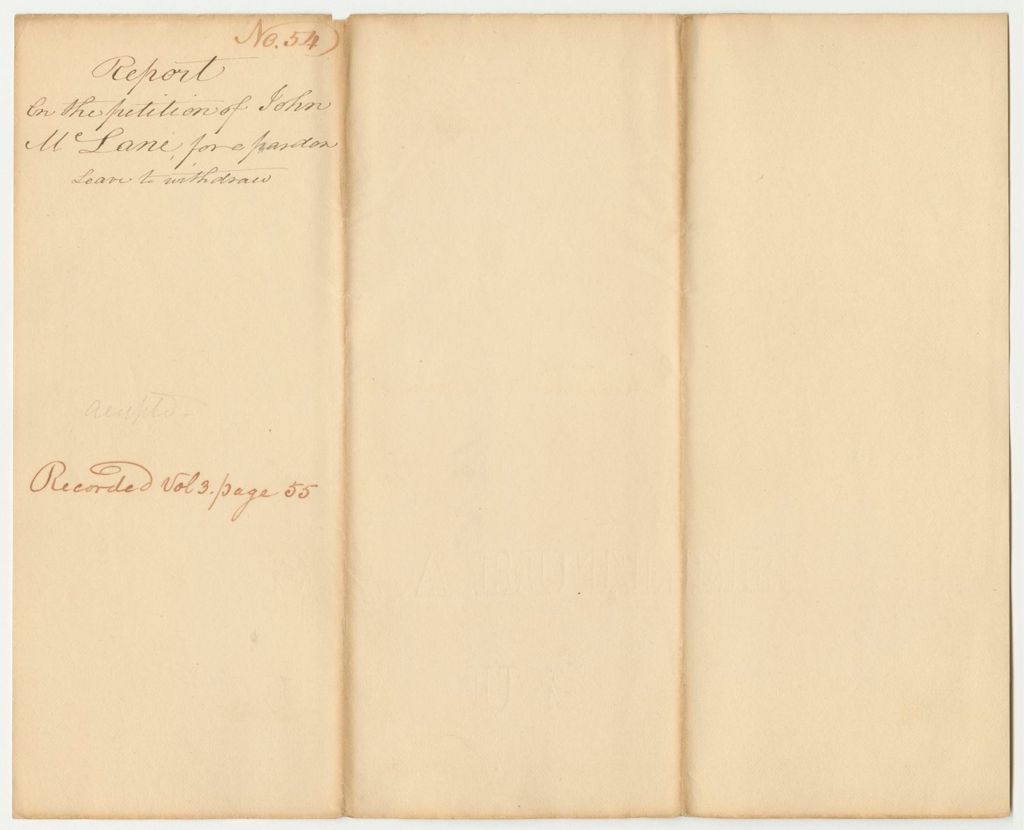 No. 54)
Report
On the petition of John
Mc Lane, for a pardon
Leave to withdraw
accepted
Recorded Vol 3. page 55